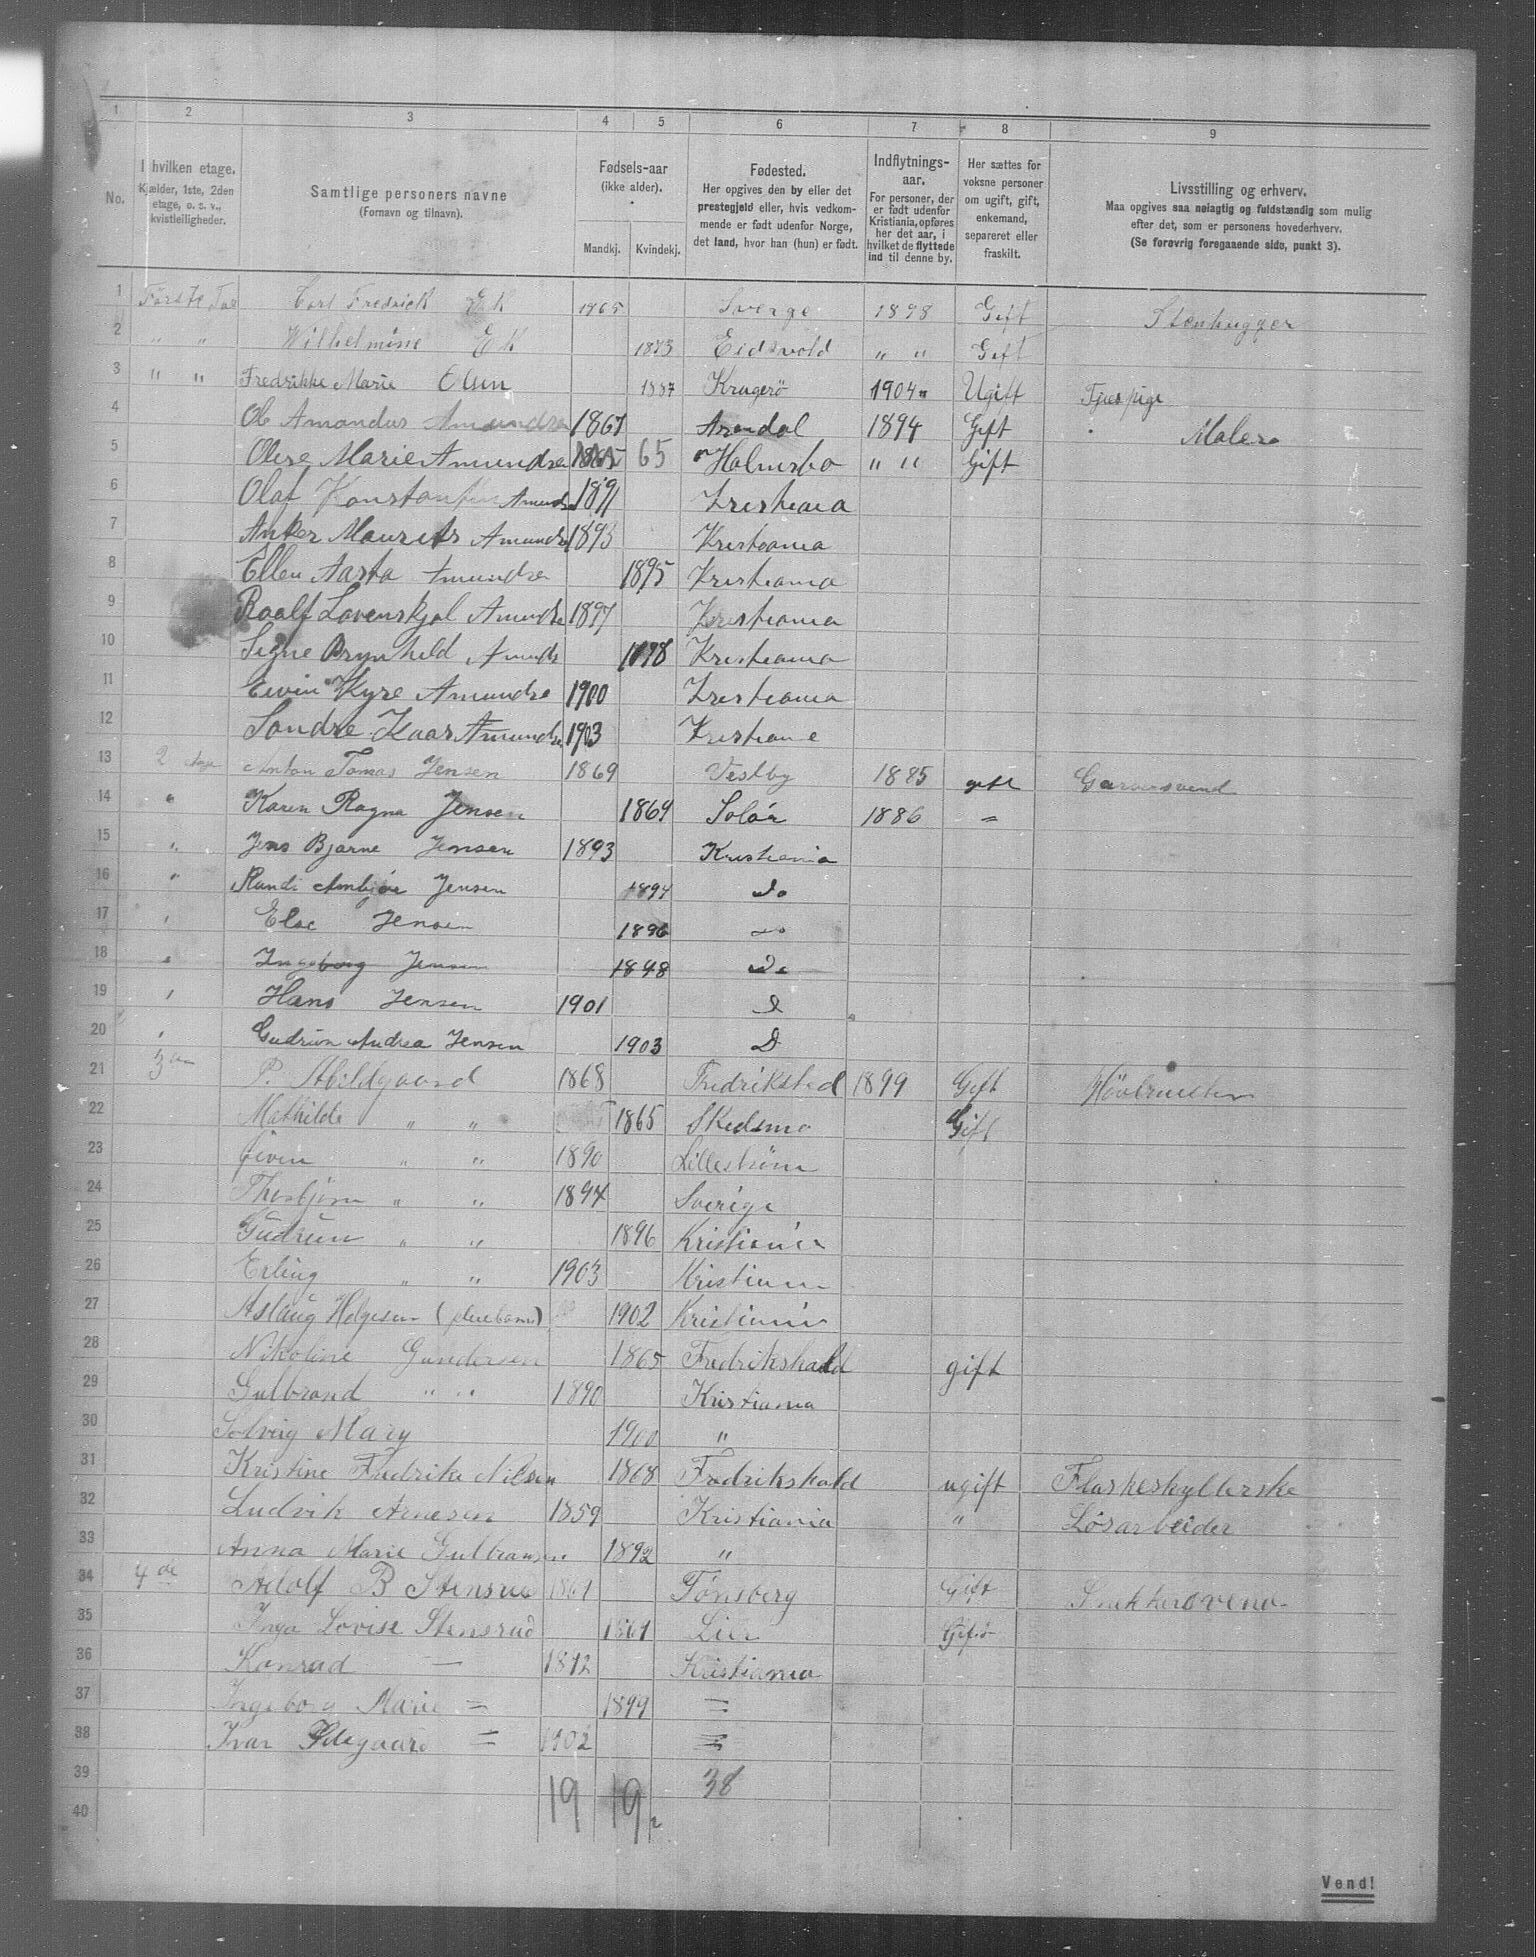 1 2 3 4 5 6 7 8 9
No.
I hvilken etage.
Kjælder, 1ste, 2den
etage, o. s. v.,
kvistleiligheder.
Samtlige personers navne
(Fornavn og tilnavn).
Fødsels-aar
(ikke alder).
Mandkj. Kvindekj.
Fødested.
Her opgives den by eller det
prestegjeld eller, hvis vedkom-
mende er født udenfor Norge,
det land, hvor han (hun) er født.
Indflytnings-
aar.
For personer, der
er født udenfor
Kristiania, opføres
her det aar, i
hvilket de flyttede
ind til denne by.
Her sættes for
voksne personer
om ugift, gift,
enkemand,
separeret eller
fraskilt.
Livsstilling og erhverv.
Maa opgives saa nøiagtig og fuldstændig som mulig
efter det, som er personens hovederhverv.
(Se forøvrig foregaaende side, punkt 3).
1 Første Carl Fredrick Ek 1865 Sverge 1898 Gift Stenhugger
2 " " Wilhelmine Ek 1873 Eidsvold " " Gift
3 " " Fredrikke Marie Olsen 1887 Kragerö 1904 Ugift Tjenspige
4 Amandus Amundsen 1867 Arendal 1894 Gift Maler
5 Marie Amundsen 65 Holmsbo " " Gift
6 Olaf Konstantin Amunds 1891 Kristiania
7 Anker Maurits Amunds 1893 Kristiania
8 Ellen Aasta Amundsen 1895 Kristiania
9 Roalf Lovenskjol Amundse 1897 Kristiania
10 Signe Brynhild Amunds 1898 Kristiania
11 Kyre Amundse 1900 Kristiania
12 Sondre Kaar Amundse 1903 Kristiania
13 2 Anton Tomas Jensen 1869 Vestby 1885 gift Garversvend
14 " Karen Ragna Jensen 1869 Solør 1886 "
15 " Jens Bjarne Jensen 1893 Kristiania
16 " Randi Jensen 1894 Do
17 " Else Jensen 1896 Do
18 " Ingeborg Jensen 1898 Do
19 " Hans Jensen 1901 D
20 " Gudrun Andrea Jensen 1903 D
21 3 P. Abildgaard 1868 Fredrikstad 1899 Gift Hövlmester
22 Mathilde " " 1865 Skedsmo Gift
23 Eivin " " 1890 Lillestrøm
24 Thorbjørn " " 1894 Sverige
25 Gudrun " " 1896 Kristiania
26 Erling " " 1903 Kristiania
27 Aslaug Helgesen (pleiebarn) 1902 Kristiania
28 Nikoline Gundersen 1865 Fredrikshald gift
29 Gulbrand " " 1890 Kristiania
30 Solveig Mary 1900 "
31 Kristine Fredrike Nilsen 1868 Fredrikshald ugift Flaskeskyllerske
32 Ludvik Arnesen 1859 Kristiania " Løsarbeider
33 Anna Marie Gulbransen 1892 "
34 4de Adolf B Stensrud 1861 Tønsberg Gift Snekkersvend
35 Inga Lovise Stensrud 1861 Lier Gift
36 Konrad — 1892 Kristiania
37 Ingeborg Marie = 1899 =
38 Ivar Ødegaard = 1902 =
39
40 19 19 38
Vend!